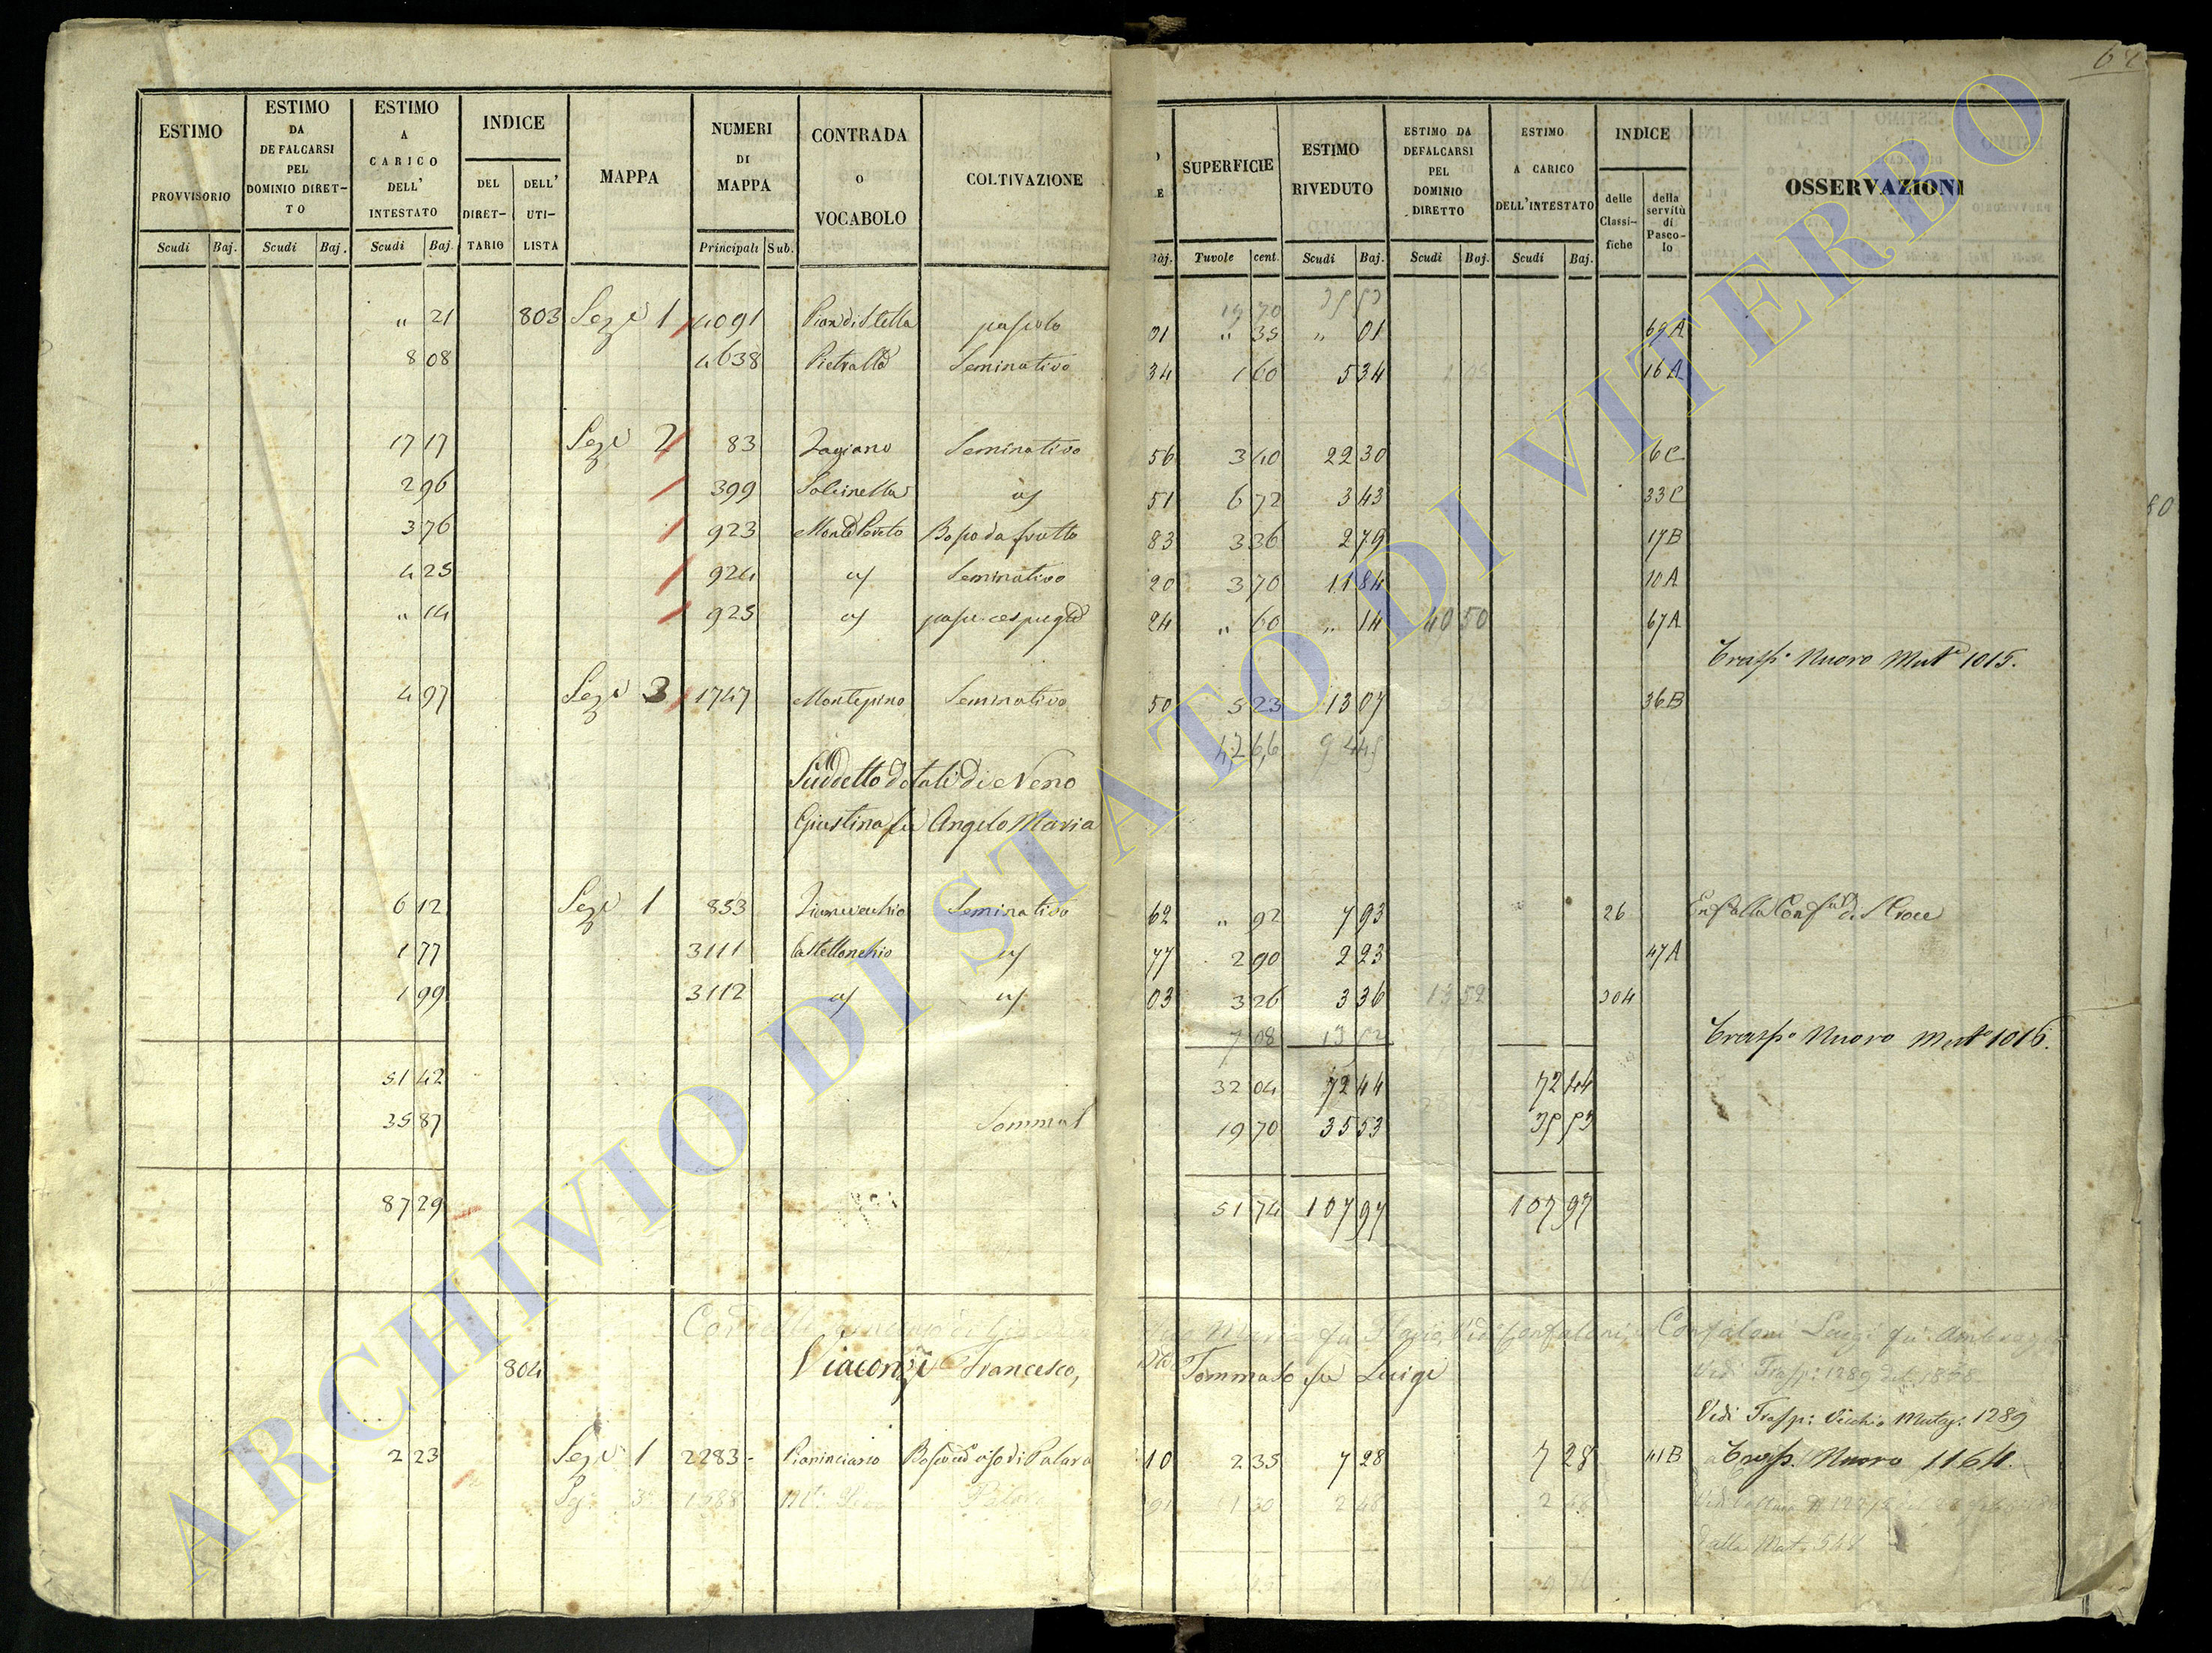 62
ESTIMO PROVVISORIO Scudi Baj.
ESTIMO DA DEFALCARSI PEL DOMINIO DIRET-TO Scudi Baj.
ESTIMO A CARICO DELL' INTESTATO Scudi Baj.
INDICE DEL DIRET-TARIO DELL' UTI-LISTA
MAPPA
NUMERI DI MAPPA Principali Sub.
CONTRADA O VOCABOLO
COLTIVAZIONE
SUPERFICIE Tavole cent.
ESTIMO RIVEDUTO Scudi Baj.
ESTIMO DA DEFALCARSI PEL DOMINIO DIRETTO Scudi Baj.
ESTIMO A CARICO DELL'INTESTATO Scudi Baj.
INDICE delle Classi-fiche della servitù di Pasco-lo
OSSERVAZIONI
19 70 35 53
„ 21 803 Seze 1 4091 Pian di Stella pascolo 01 „ 35 „ 01 69A
8 08 4638 Seminativo 34 1 60 5 34 16A
17 17 Sez 2 83 Seminativo 56 3 40 22 30 6C
2 96 399 Salcinella id 51 6 72 3 43 33C
3 76 923 Bosco da frutto 83 3 36 2 79 17B
4 25 924 id Seminativo 20 3 70 11 84 10A
„ 14 925 id pasc. cespuglio 24 „ 60 „ 14 40 50 67A
Trasp. Nuovo Mut 1015.
4 97 Sez 3 1747 Montepino Seminativo 50 5 23 13 07 36B
Suddetto dotali di Neno
Giustina fu Angelo Maria
6 12 Sez 1 853 Seminativo 62 „ 92 7 93 26 Enf. alla Conf. di S. Croce
1 77 3111 Castellonchio id 77 2 90 2 23 47A
1 99 3112 id id 03 3 26 3 36 13 52 304
7 08 13 52
Trasp. Nuovo Mut 1016.
51 42 32 04 72 44 72 44
35 87 19 70 35 53 35 53
87 29 51 74 107 97 107 97
Confaloni Luigi fu Ambrogio
804 Francesco, Tommaso fu Luigi
Vedi Trasp: 1289 del 1858
Vedi Trasp: Vecchio Mutaz: 1289
2 23 Sez 1 2283 Pianinciano 10 2 35 7 28 7 28 41B Trasp. Nuovo 1164.
1588 1 30 2 48 2 48
dalla Mat. 548
80
ARCHIVIO DI STATO DI VITERBO